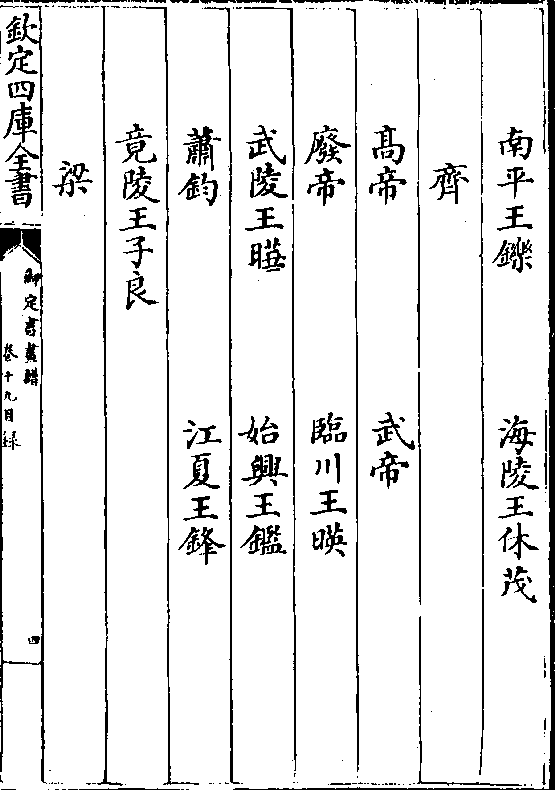 南平王鑠　海陵王休茂
齊
髙帝　武帝
廢帝　臨川王暎
武陵王曅　始興王鑑
蕭鈞　江夏王鋒
竟陵王子良
梁
欽定四庫全書
御定書畫譜
卷十九目録
四